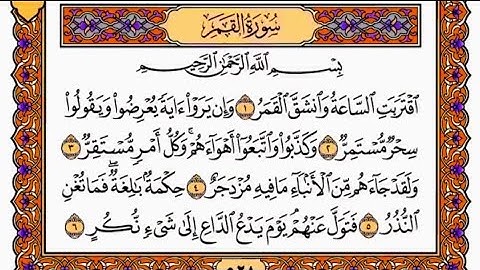 سُورَةُ القَمَرِ
بِسْمِ اللَّهِ الرَّحْمَٰنِ الرَّحِيمِ
ٱقْتَرَبَتِ ٱلسَّاعَةُ وَٱنشَقَّ ٱلْقَمَرُ ١ وَإِن يَرَوْا۟ ءَايَةً يُعْرِضُوا۟ وَيَقُولُوا۟
سِحْرٌ مُّسْتَمِرٌّ ٢ وَكَذَّبُوا۟ وَٱتَّبَعُوٓا۟ أَهْوَآءَهُمْ ۚ وَكُلُّ أَمْرٍ مُّسْتَقِرٌّ ٣
وَلَقَدْ جَآءَهُم مِّنَ ٱلْأَنۢبَآءِ مَا فِيهِ مُزْدَجَرٌ ٤ حِكْمَةٌۢ بَٰلِغَةٌ ۖ فَمَا تُغْنِ
ٱلنُّذُرُ ٥ فَتَوَلَّ عَنْهُمْ ۘ يَوْمَ يَدْعُ ٱلدَّاعِ إِلَىٰ شَىْءٍ نُّكُرٍ ٦
٥٢٨